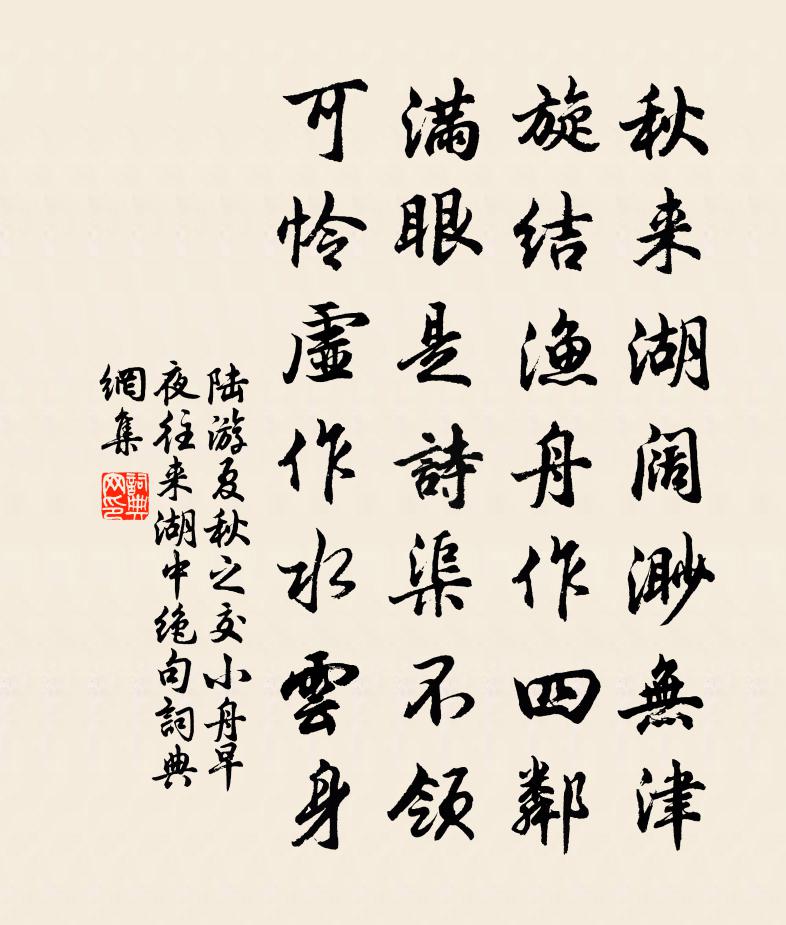 秋来湖阔渺無津
旋结渔舟作四鄰
滿眼是詩渠不领
可怜虚作水雲身
陆游夏秋之交小舟早
夜往来湖中绝句詞典
網集
詞典
网印